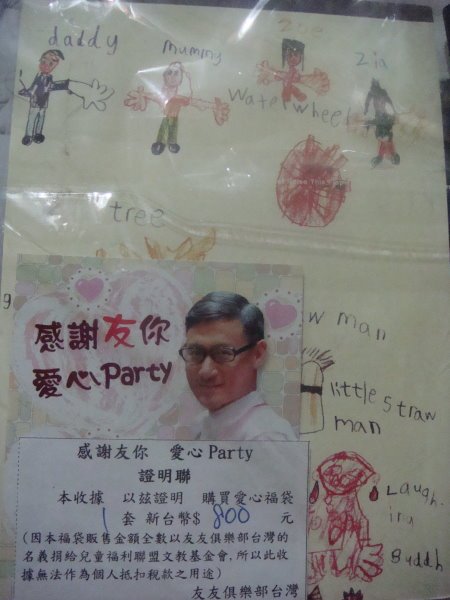 daddy
mummy
zie
zia
water wheel
tree
g
感謝友你
愛心Party
w man
little straw
man
感謝友你 愛心 Party
證明聯
本收據 以茲證明 購買愛心福袋
1 套 新台幣$ 800 元
(因本福袋販售金額全數以友友俱樂部台灣的
名義捐給兒童福利聯盟文教基金會,所以此收
據無法作為個人抵扣稅款之用途)
友友俱樂部台灣
Laugh.
Buddh